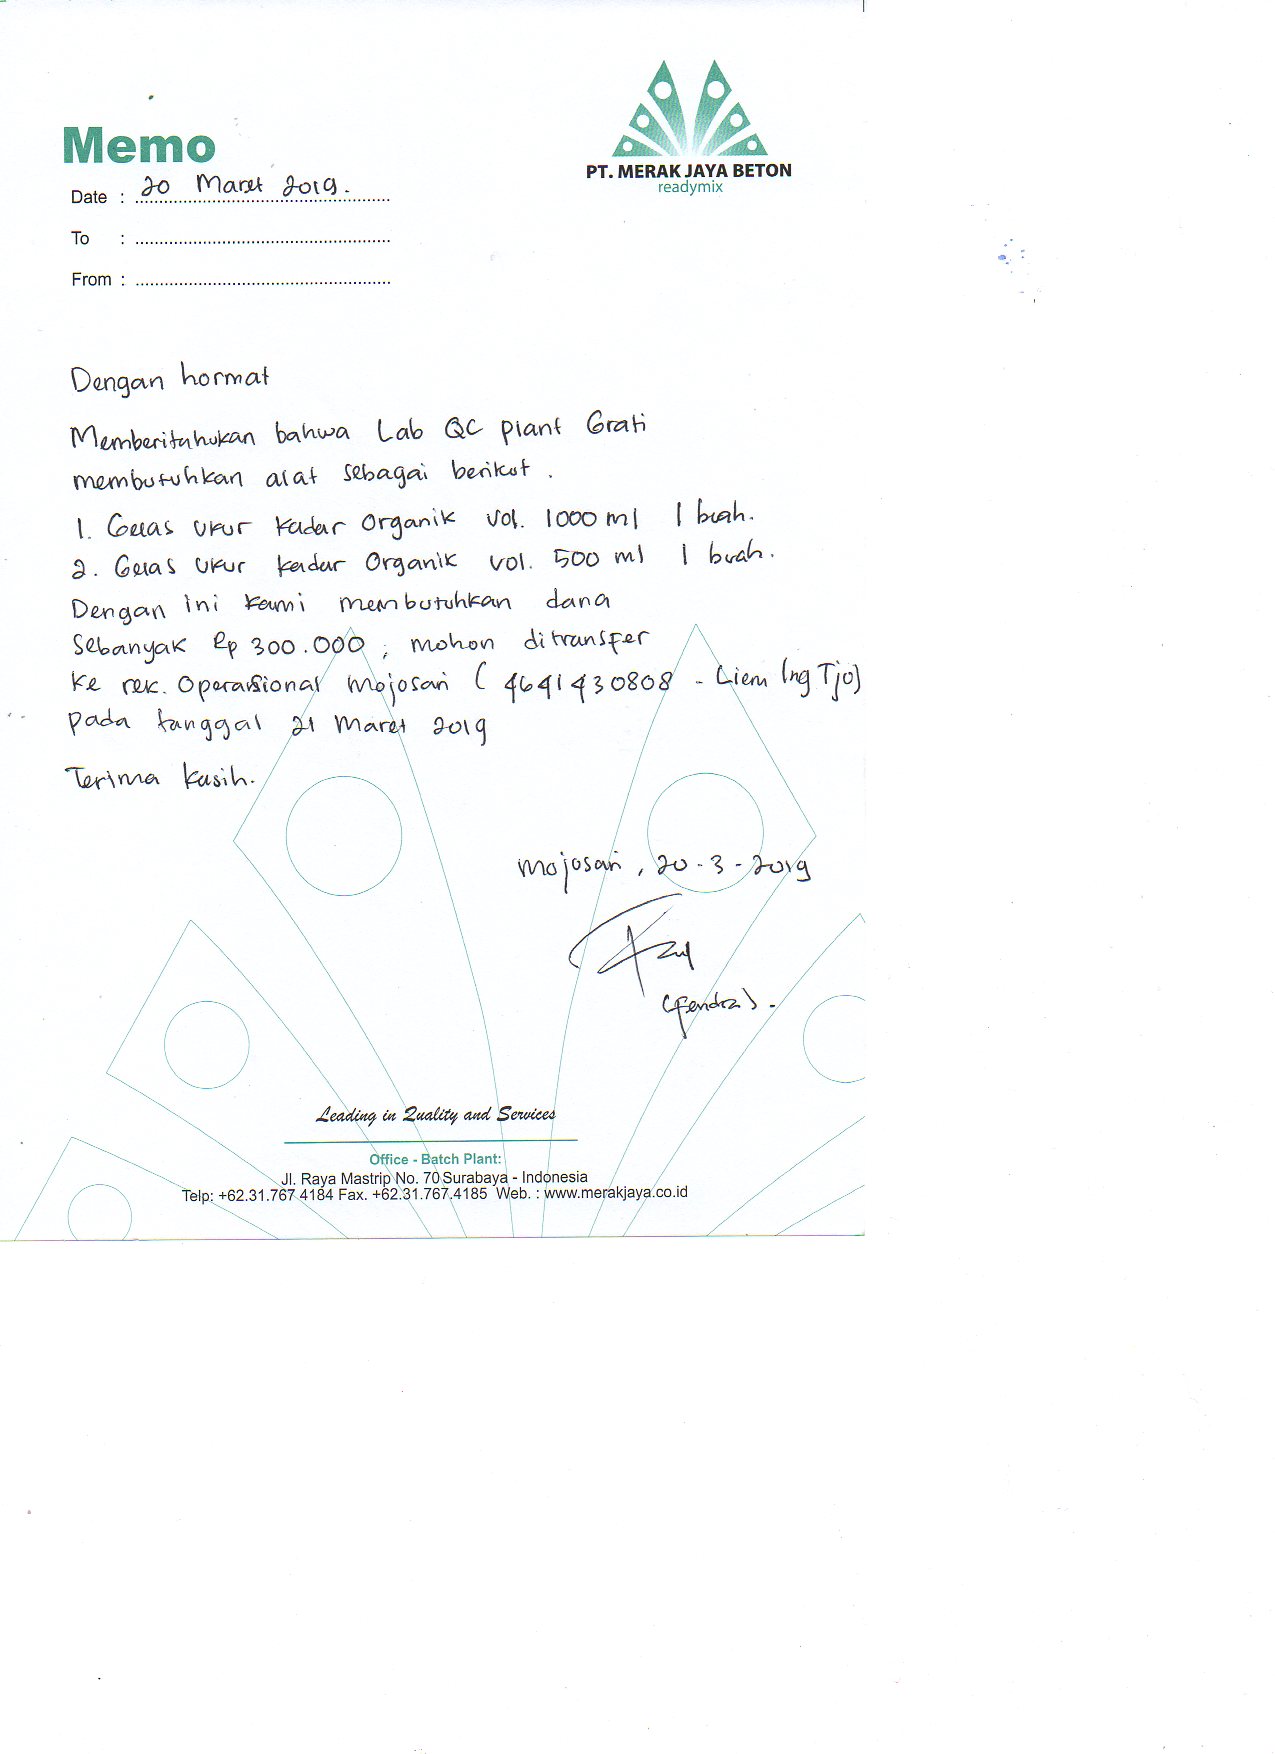 Memo
PT. MERAK JAYA BETON
readymix
Date : 20 Maret 2019.
To :
From :
Dengan hormat
Memberitahukan bahwa Lab QC plant Grati
membutuhkan alat sebagai berikut.
1. Gelas ukur kadar organik vol. 1000 ml 1 buah.
2. Gelas ukur kadar organik vol. 500 ml 1 buah.
Dengan ini kami membutuhkan dana
sebanyak Rp 300.000, mohon ditransfer
ke rek. Operasional Mojosari (4641430808 - Liem Ing Tjo)
pada tanggal 21 Maret 2019
Terima kasih.
Mojosari, 20-3-2019
(Fendra).
Leading in Quality and Services
Office - Batch Plant:
Jl. Raya Mastrip No. 70 Surabaya - Indonesia
Telp: +62.31.767 4184 Fax. +62.31.767.4185 Web. : www.merakjaya.co.id